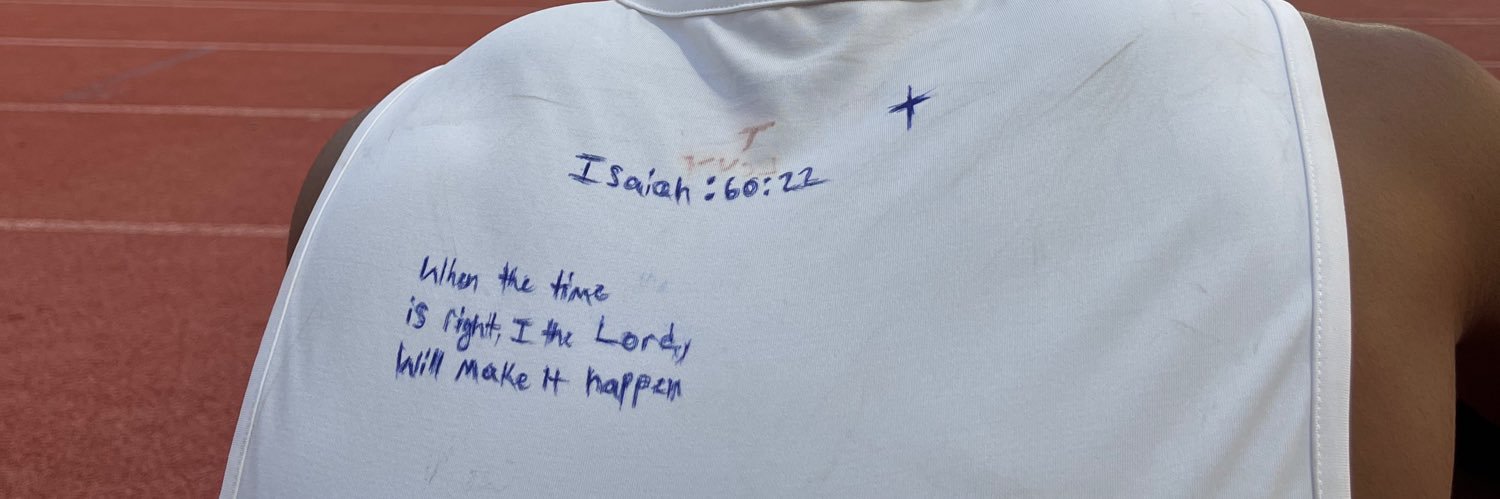 Isaiah:60:22
When the time
is right, I the Lord,
Will make it happen